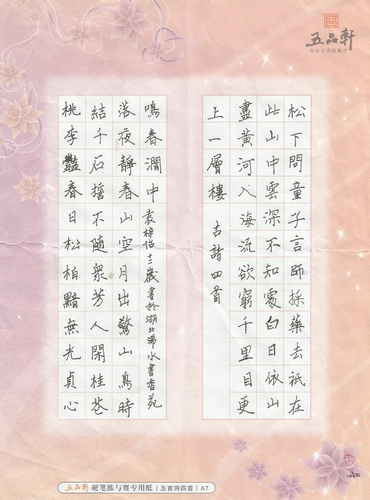 五品軒
松下問童子言師採藥去祇在
此山中雲深不知處白日依山
盡黃河入海流欲窮千里目更
上一層樓 古詩四首
桃李豔春日松柏黯無光貞心
結千石誓不隨衆芳人閑桂花
落夜靜春山空月出驚山鳥時
鳴春澗中 袁梓 十二歲書於湖北浠水書香苑
五品軒 硬笔练与赛专用纸（五言诗四首）A7